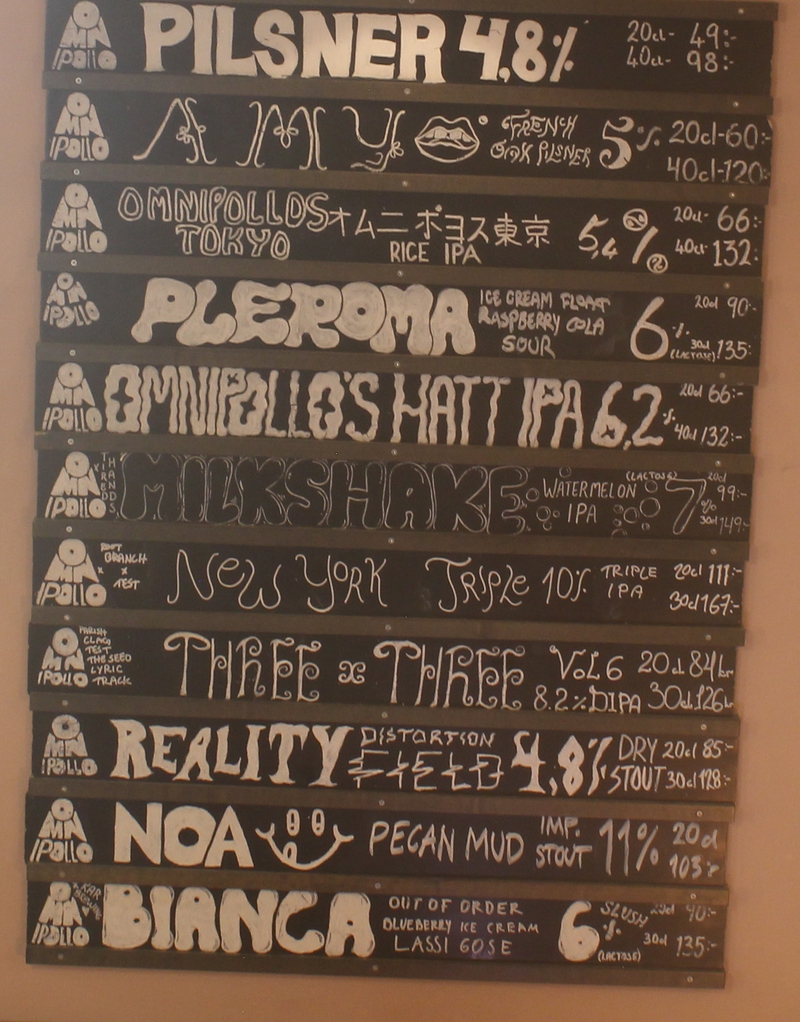 OMNIPOLLO PILSNER 4,8% 20cl- 49:-
40cl- 98:-
OMNIPOLLO AMY FRENCH OAK PILSNER 5% 20cl-60:-
40cl-120:-
OMNIPOLLO OMNIPOLLOS TOKYO オムニポヨス東京 RICE IPA 5,4% 20cl- 66:-
40cl- 132:-
OMNIPOLLO PLEROMA ICE CREAM FLOAT
RASPBERRY COLA
SOUR 6% (LACTOSE) 20cl 90:-
30cl 135:-
OMNIPOLLO OMNIPOLLO'S HATT IPA 6,2% 20cl 66:-
40cl 132:-
OMNIPOLLO MILKSHAKE WATERMELON
IPA (LACTOSE) 7% 20cl 99:-
30cl 149:-
OMNIPOLLO BRANCH
x
TEST NEW YORK TRIPLE 10% TRIPLE
IPA 20cl 111:-
30cl 167:-
OMNIPOLLO PARISH
CLAG
TEST
THE SEED
LYRIC
TRACK THREE x THREE VOL 6
8.2% DIPA 20cl 84kr
30cl 126kr
OMNIPOLLO REALITY DISTORTION
FIELD 4,8% DRY
STOUT 20cl 85:-
30cl 128:-
OMNIPOLLO NOA PECAN MUD IMP.
STOUT 11% 20cl
103:-
OMNIPOLLO BIANCA OUT OF ORDER
BLUEBERRY ICE CREAM
LASSI GOSE 6% (LACTOSE) SLUSH 90:-
30cl 135:-